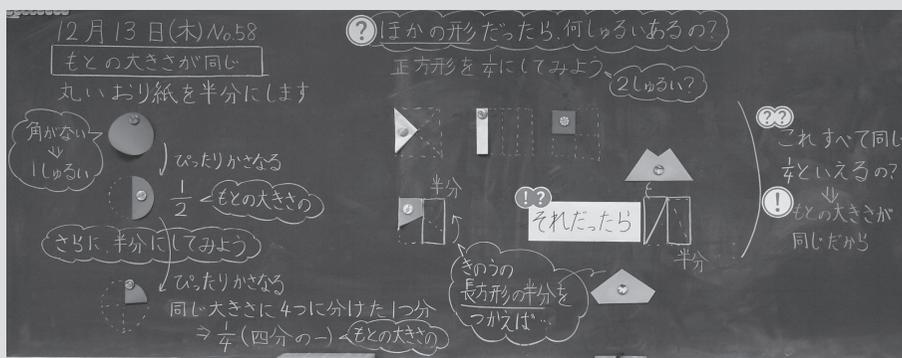 12月13日(木)No.58
もとの大きさが同じ
丸いおり紙を半分にします
角がない
⇓
1しゅるい
ぴったりかさなる
1/2
もとの大きさの
さらに、半分にしてみよう
ぴったりかさなる
同じ大きさに4つに分けた1つ分
⇒1/4(四分の一)
もとの大きさの
?
ほかの形だったら、何しゅるいあるの?
正方形を1/4にしてみよう
2しゅるい?
半分
!?
それだったら
半分
きのうの
長方形の半分を
つかえば…
??
これすべて同じ
1/4といえるの?
⇓
!
もとの大きさが
同じだから